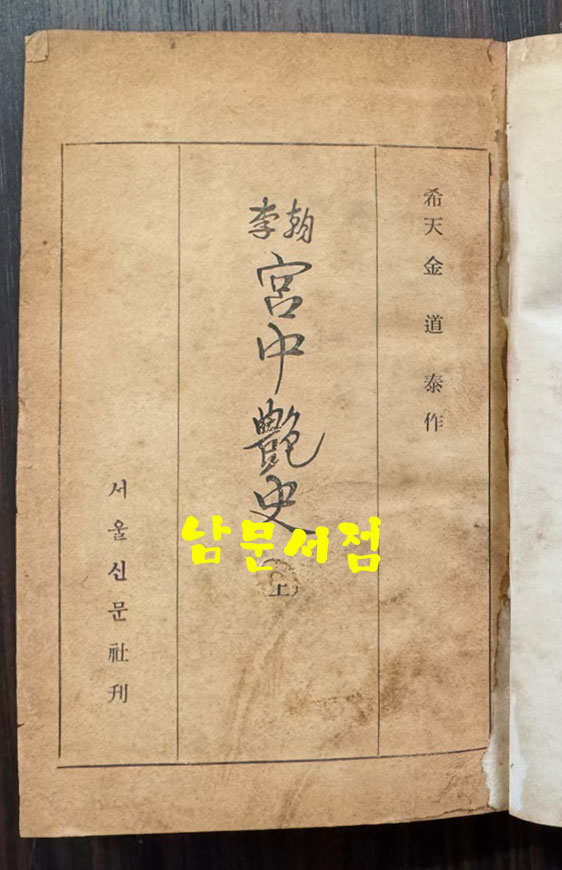 希天 金道泰 作
李朝
宮中艶史
(上)
서울신문社刊
남문서점